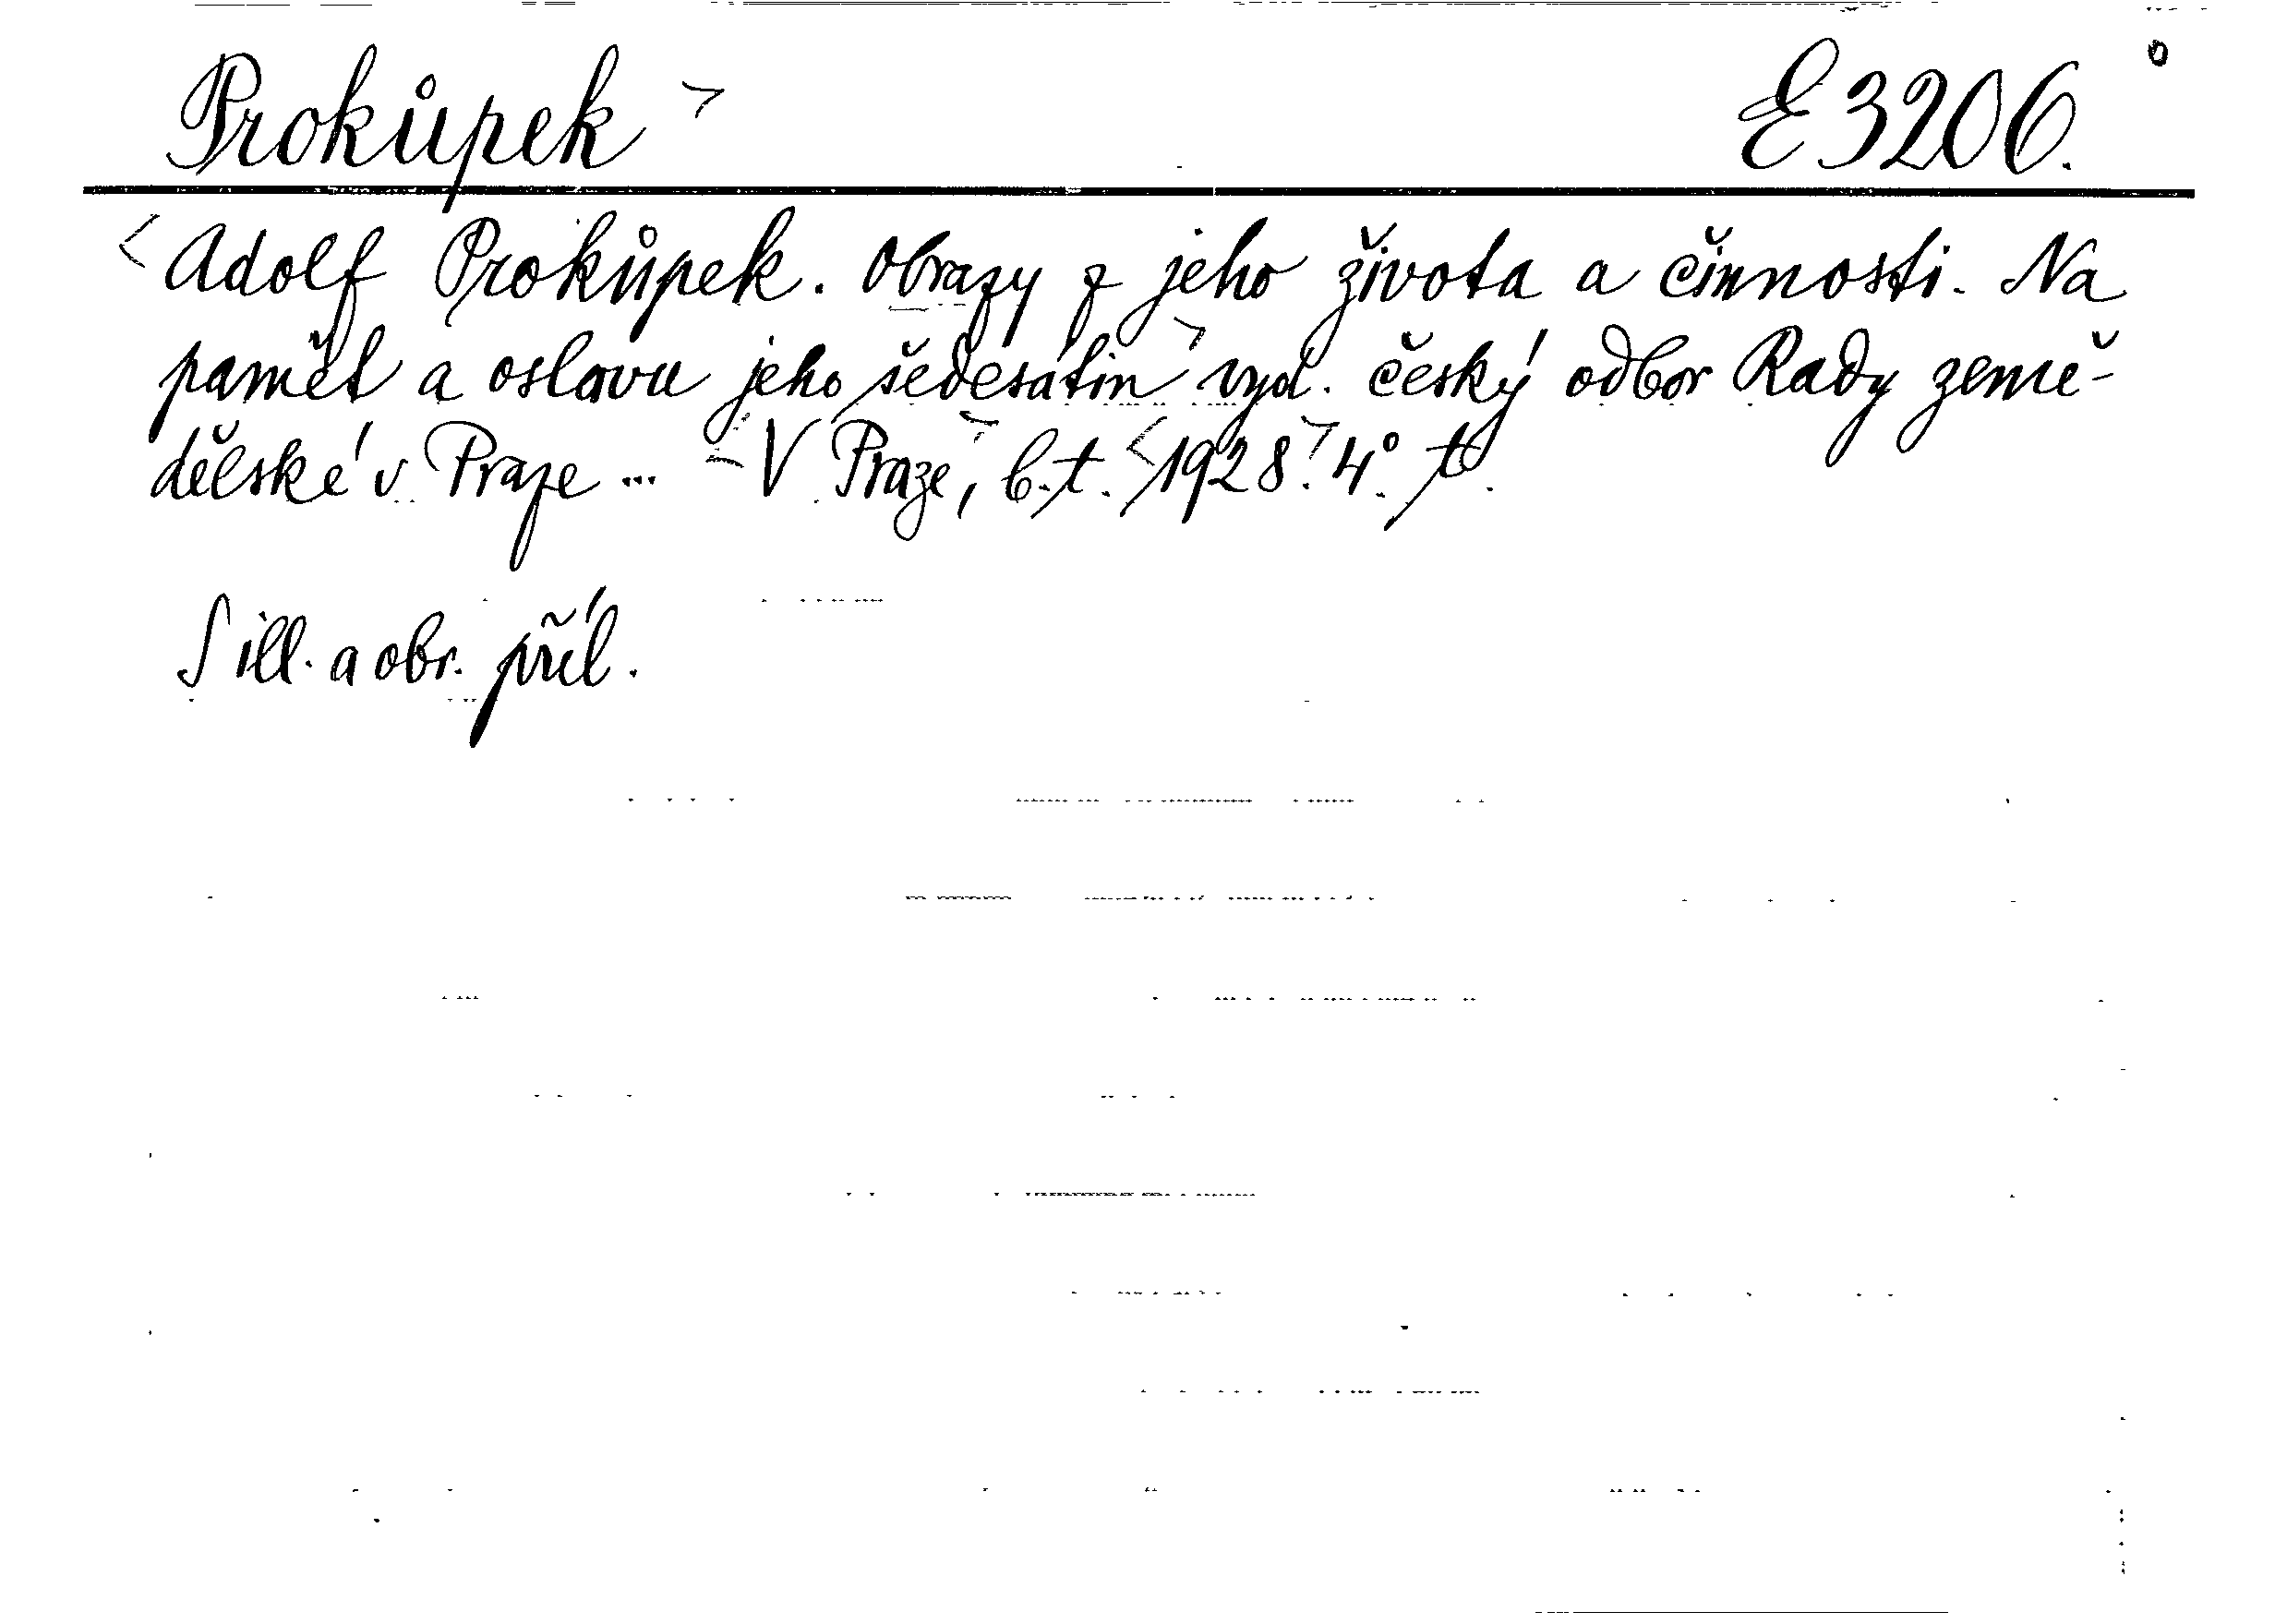 Prokůpek > E 3206.
<Adolf Prokůpek. Obrazy z jeho života a činnosti. Na
paměť a oslavu jeho šedesátin > vyd. český odbor Rady země-
dělské v Praze ... - V Praze >, b. t. <1928.> 4°.
S ill. a obr. příl.